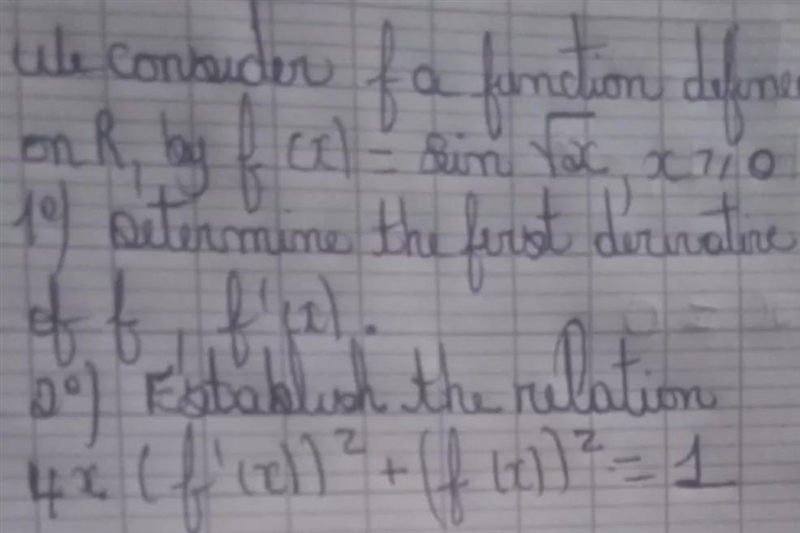 We consider f a function define
on R, by f(x) = sin √x, x ⩾ 0
1°) Determine the first derivative
of f, f'(x).
2°) Establish the relation
4x (f'(x))² + (f(x))² = 1